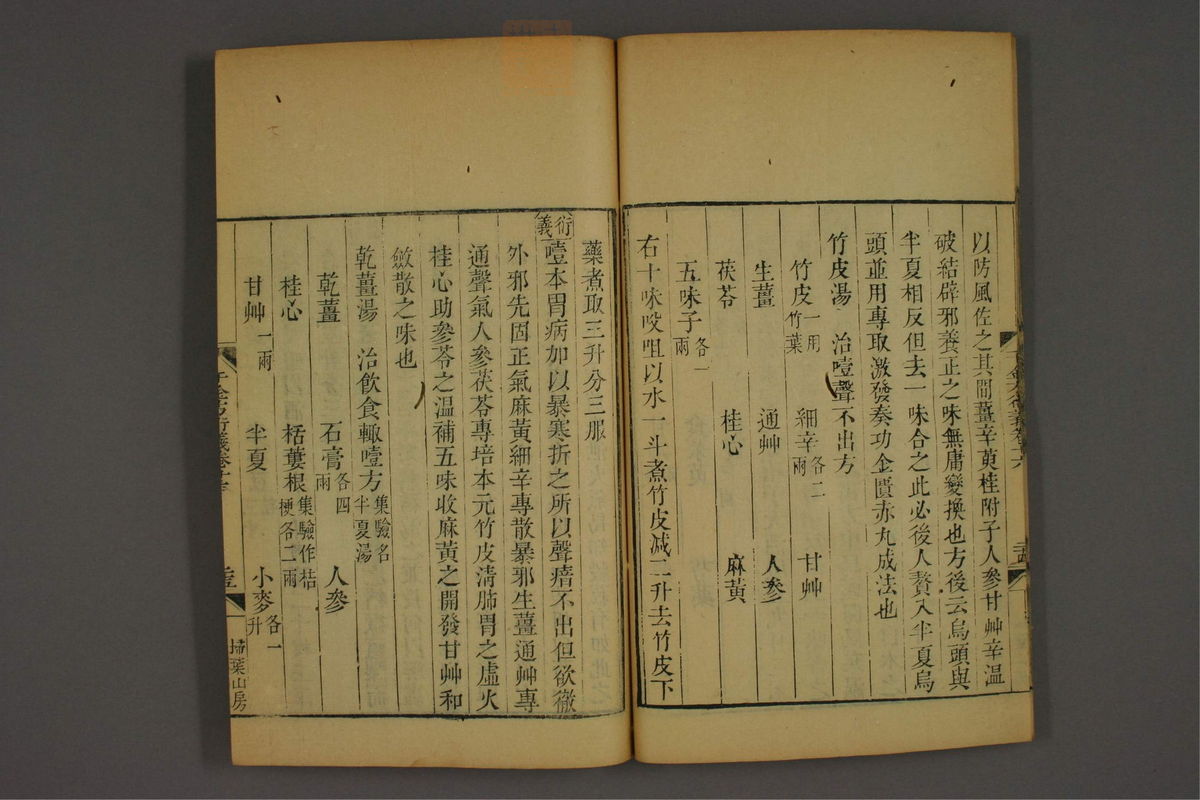 以防風佐之其間薑辛萸桂附子人參甘艸辛溫
破結辟邪養正之味無庸變換也方後云烏頭與
半夏相反但去一味合之此必後人贅入半夏烏
頭並用專取激發奏功金匱赤丸成法也
竹皮湯 治噎聲不出方
竹皮一用竹葉 細辛各二兩 甘艸
生薑 通艸 人參
茯苓 桂心 麻黃
五味子各一兩
右十味㕮咀以水一斗煮竹皮減二升去竹皮下
藥煮取三升分三服
衍義 噎本胃病加以暴寒折之所以聲瘖不出但欲徹
外邪先固正氣麻黃細辛專散暴邪生薑通艸專
通聲氣人參茯苓專培本元竹皮淸肺胃之虛火
桂心助參苓之溫補五味收麻黃之開發甘艸和
斂散之味也
乾薑湯 治飲食輙噎方集驗名半夏湯
乾薑 石膏各四兩 人參
桂心 栝蔞根集驗作桔梗各二兩 小麥各一升
甘艸一兩 半夏
掃葉山房